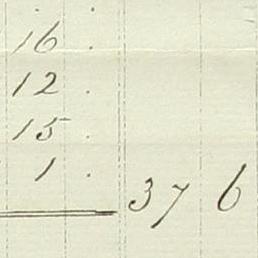 16 .
12 .
15 .
1 .
37 6